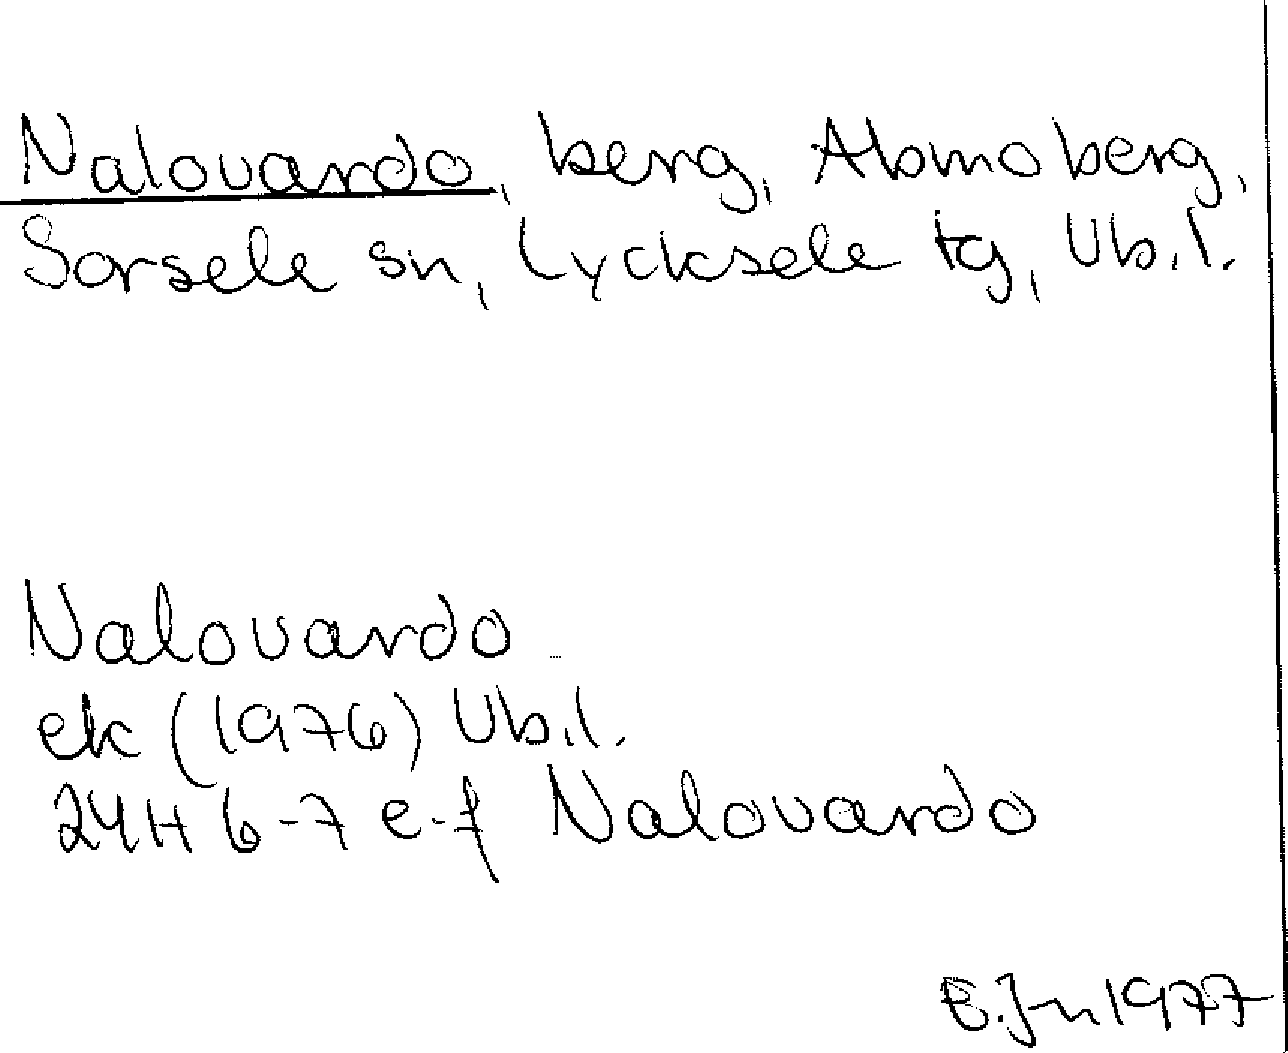 Nalovardo, berg, Abmoberg,
Sorsele sn, Lycksele tg, Vb.l.
Nalovardo
ek (1976) Vb.l.
24H 6-7 e-f Nalovardo
B.Jn 1977